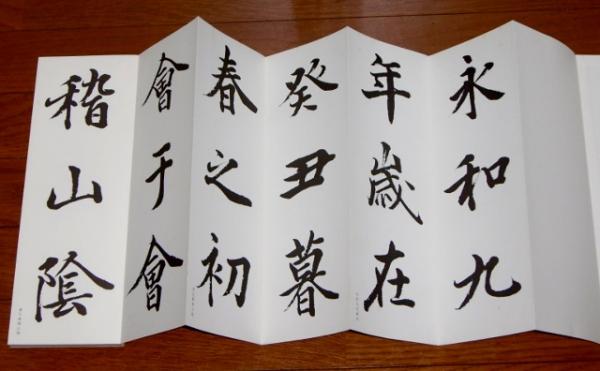 永和九
年歳在
癸丑暮
春之初
會于會
稽山陰